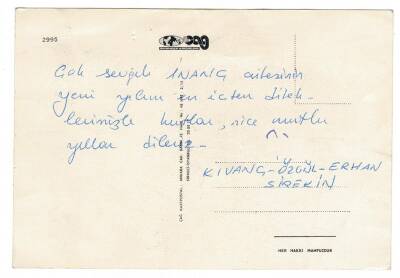 2995
Çok sevgili INANÇ ailesinin
yeni yılını en içten dilek-
lerimizle kutlar, nice mutlu
yıllar dileriz -
KIVANÇ-ÖZGÜL-ERHAN
SİREKİN
HER HAKKI MAHFUZDUR